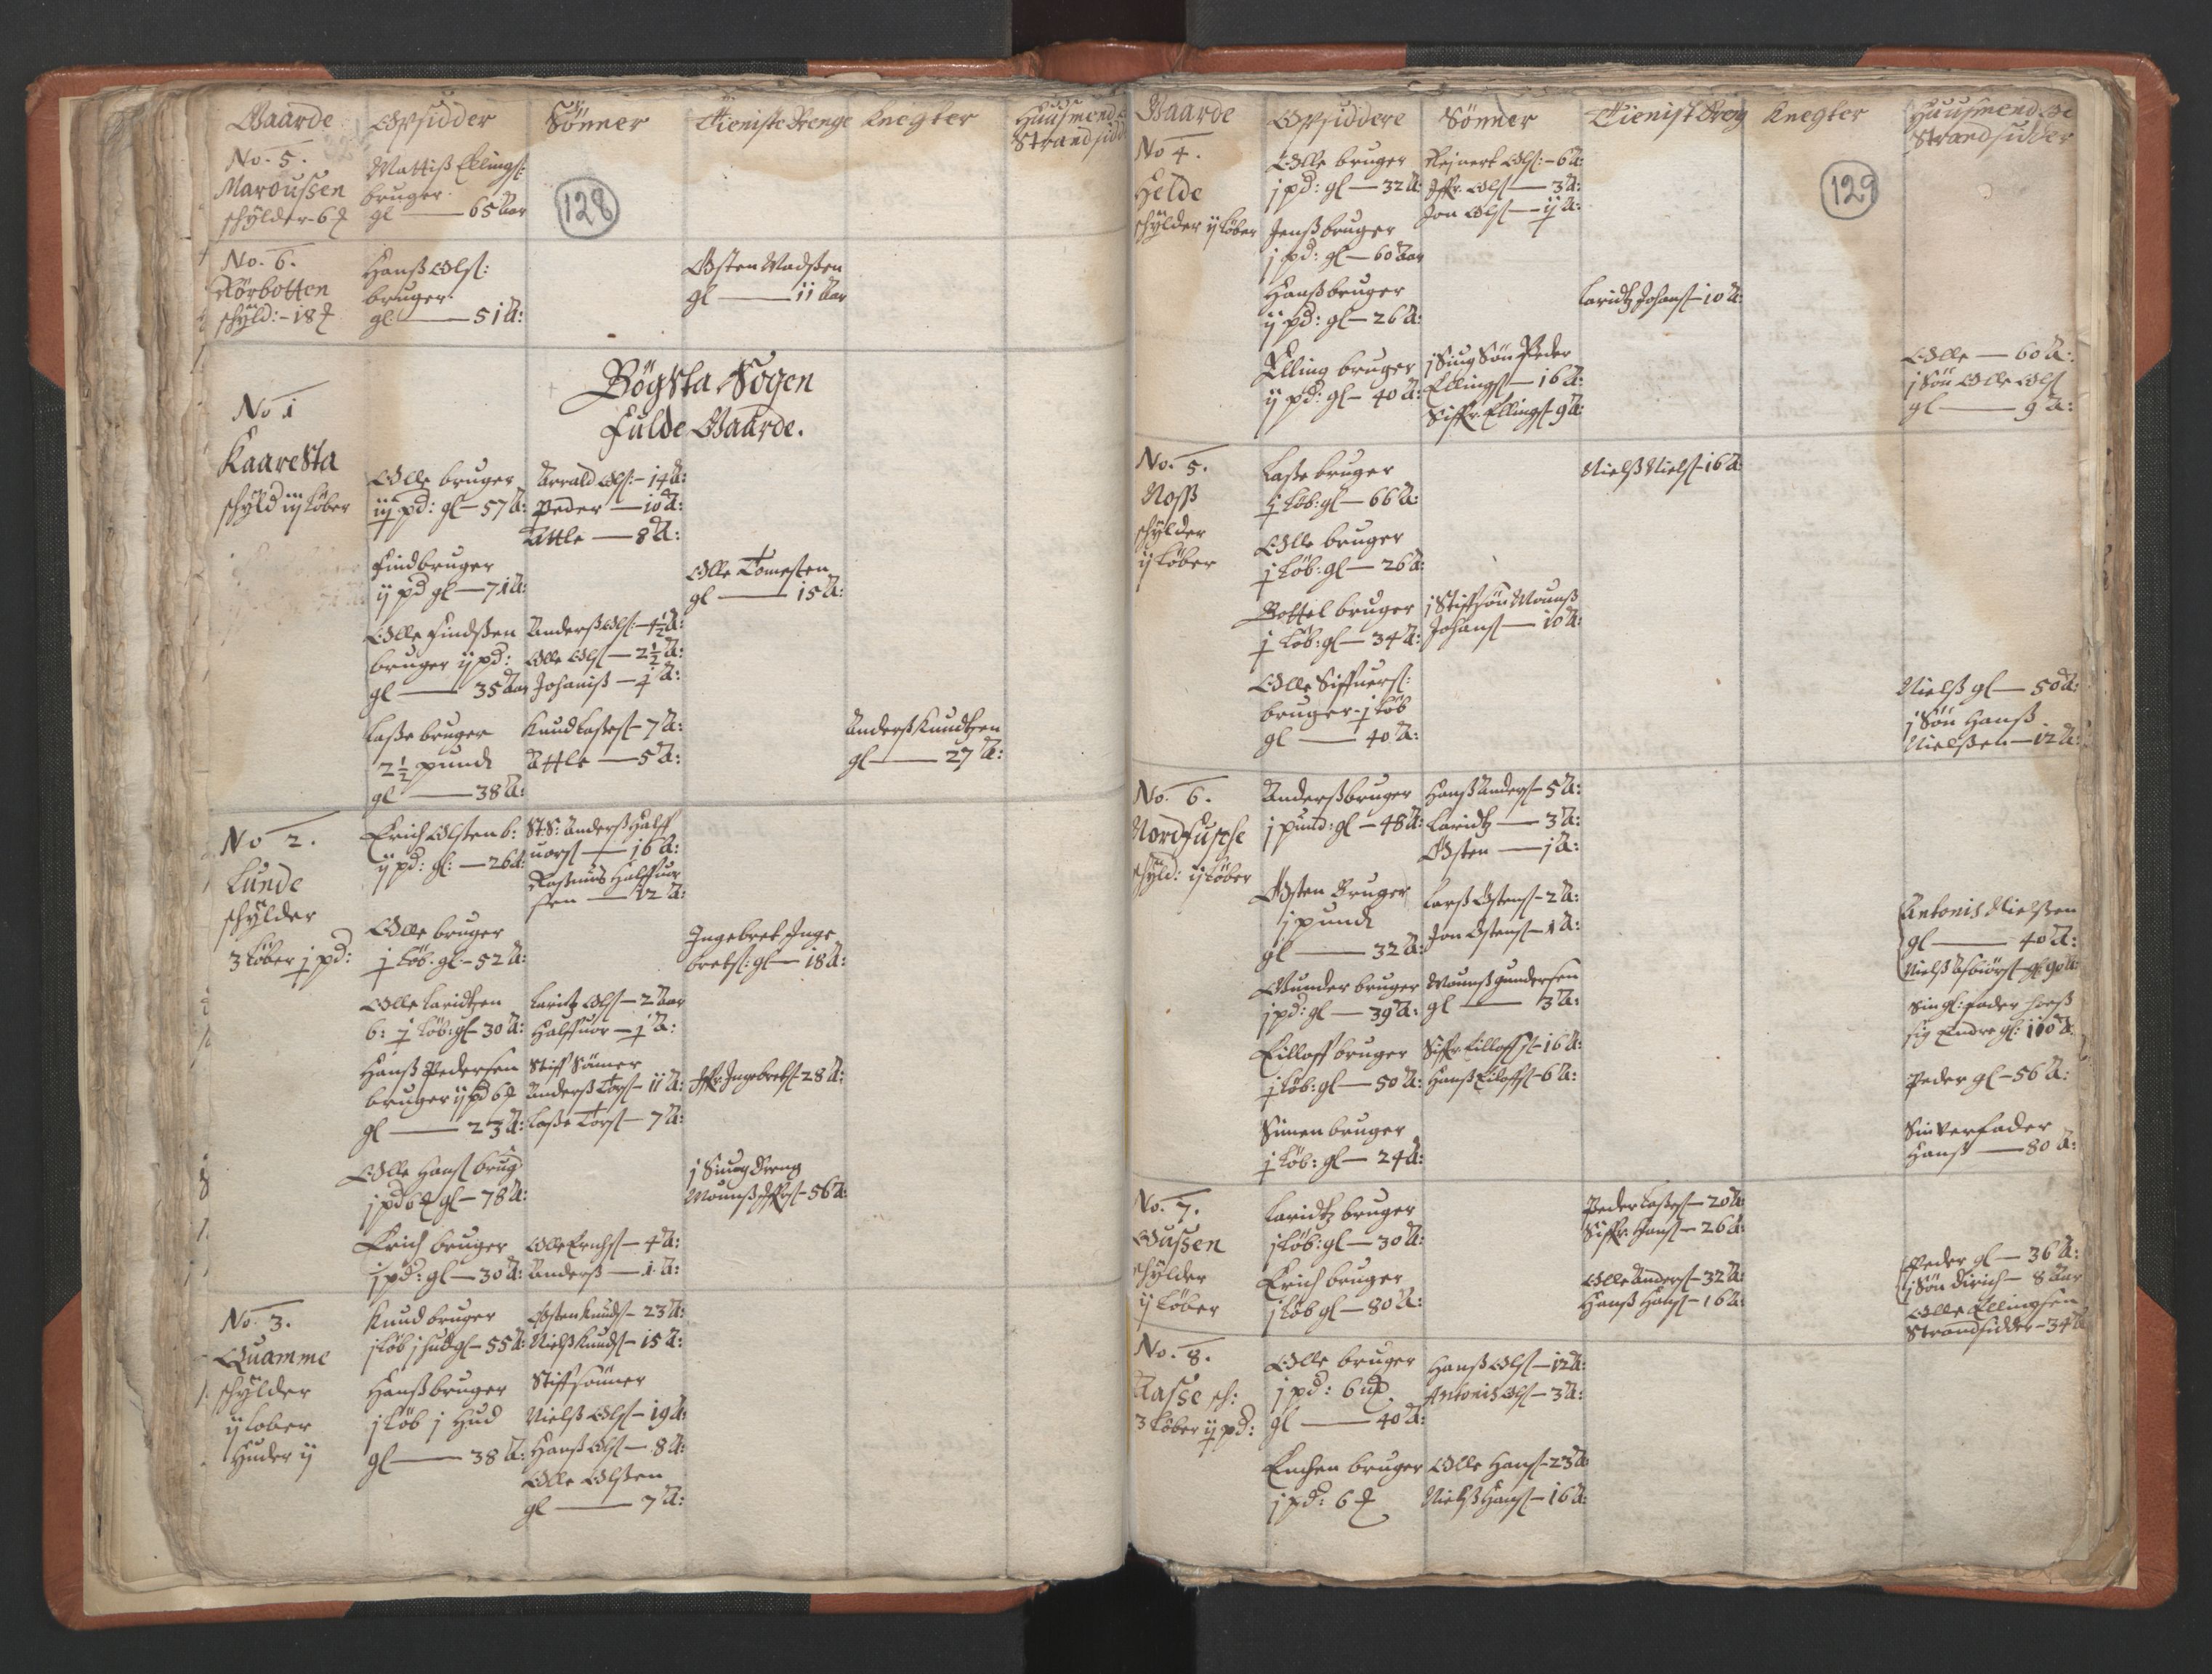 Gaarde
Opsidder
Sönner
Tieniste Drenge
Knegter
Huusmend
Strandsidd
128
No. 5.
Maroussen
schylder - 6
Mattiß Ellings:
bruger
gl — 65 Aar
No. 6.
Rörbotten
schyld: - 18
Hanß Olß:
bruger
gl — 51 A:
Östen Madßen
gl — 11 Aar
Bögsta Sogen
Fulde Gaarde.
No 1
Kaaresta
schyld iij Löber
Olle bruger
iij pd: gl — 57 A:
Arrald Olß: — 14 A:
Peder — 10 A:
Attle — 8 A:
Find bruger
ij pd gl — 71 A:
Olle Tomesßen
gl — 15 A:
Olle Findßen
bruger ij pd:
gl — 35 Aar
Anderß Olß: — 4½ A:
Olle Olß — 2½ A:
Johaniß — ½ A:
Laße bruger
2½ pund
gl — 38 A:
Knud Laßeß — 7 A:
Attle — 5 A:
Anderß Knudtzen
gl — 27 A:
No 2.
Lunde
schylder
3 Löber j pd:
Erich Olßen b:
ij pd: gl: — 26 A:
St: S: Anderß Halff
uorß — 16 A:
Raßmus Halffuor
ßen — 12 A:
Olle bruger
½ Löb: gl — 52 A:
Ingebret Inge
bretß: gl — 18 A:
Olle Laridtzen
b: ½ Löb: gl — 30 A:
Laritz Olß — 2 Aar
Halffuor — ½ A:
Hanß Pedersen
bruger ij pd 6
gl — 23 A:
Stiff Sönner
Anderß Torß — 11 A:
Laße Torß — 7 A:
Iffr Ingebretß — 28 A:
Olle Hanß brug
j pd 6 gl — 78 A:
j Siug Dreng
Mouns Iffrß — 56 A:
Erich bruger
j pd: gl — 30 A:
Olle Erichß — 4 A:
Anderß — 1 A:
No. 3.
Quamme
schylder
ij Löber
Huder ij
Knud bruger
j Löb j Hud gl — 55 A:
Östen Knudß — 23 A:
Nielß Knudß — 15 A:
Hanß bruger
j Löb j Hud
gl — 38 A:
Stiffsönner
Nielß Olß — 19 A:
Hanß Olß — 8 A:
Olle Olßen
gl — 7 A:
Gaarde
Opsiddere
Sönner
Tienist Dreng
Knegter
Huusmend oc
Strandsidder
129
No 4.
Helde
schylder ij Löber
Olle bruger
j pd: gl — 32 A:
Reinert Olß: — 6 A:
Iffr. Olß — 3 A:
Jon Olß — ½ A:
Jenß bruger
j pd: gl — 60 Aar
Hanß bruger
ij pd: gl — 26 A:
Laridtz Johanß — 10 A:
Elling bruger
ij pd: gl — 40 A:
j Siug Sön Peder
Ellingß — 16 A:
Siffr. Ellingß — 9 A:
Olle — 60 A:
j Sön Olle Olß
gl — 9 A:
No. 5.
Noss
schylder
ij Löber
Laße bruger
½ Löb: gl — 66 A:
Nielß Nielß — 16 A:
Olle bruger
½ Löb: gl — 26 A:
Bottel bruger
½ Löb: gl — 34 A:
j Stiffsön Mounß
Johanß — 10 A:
Olle Siffuerß:
bruger ½ Löb
gl — 40 A:
Nielß gl — 50 A:
j Sön Hanß
Nielßen — 12 A:
No. 6.
Nordfusche
schyld: ij Löber
Anderß bruger
j pund: gl — 48 A:
Hanß Anderß — 5 A:
Laridtz — 3 A:
Östen — 1 A:
Östen Bruger
j pund
gl — 32 A:
Larß Östenß — 2 A:
Jon Östenß — 1 A:
Antonis Nielßen
gl — 40 A:
Nielß Asbiörß — gl 90 A:
Gunder bruger
j pd: gl — 39 A:
Mounß Gundersen
gl — 3 A:
Sin gl: fader
sig Endre gl: 110 A:
Eilloff bruger
½ Löb: gl — 50 A:
Siffr. Eilloffß — 16 A:
Hanß Eiloffß — 6 A:
Peder gl — 56 A:
Simen bruger
½ Löb: gl — 24 A:
Sin Verfader
Hanß — 80 A:
No. 7.
Oussen
schylder
ij Löber
Laridtz bruger
j Löb: gl — 30 A:
Peder Laßeß — 20 A:
Siffr. Hanß — 26 A:
Erich bruger
j Löb gl — 80 A:
Olle Anderß — 32 A:
Hanß Hanß — 16 A:
Peder gl — 36 A:
j Sön Dirich — 8 Aar
Olle Ellingsen
Strandsidder — 34 A
No. 8.
Aasse sch:
3 Löber ij pd:
Olle bruger
j pd: 6
gl — 40 A:
Hanß Olß — 12 A:
Antonis Olß — 3 A:
Enchen bruger
j pd: 6
Olle Hanß — 23 A:
Nielß Hanß — 16 A: